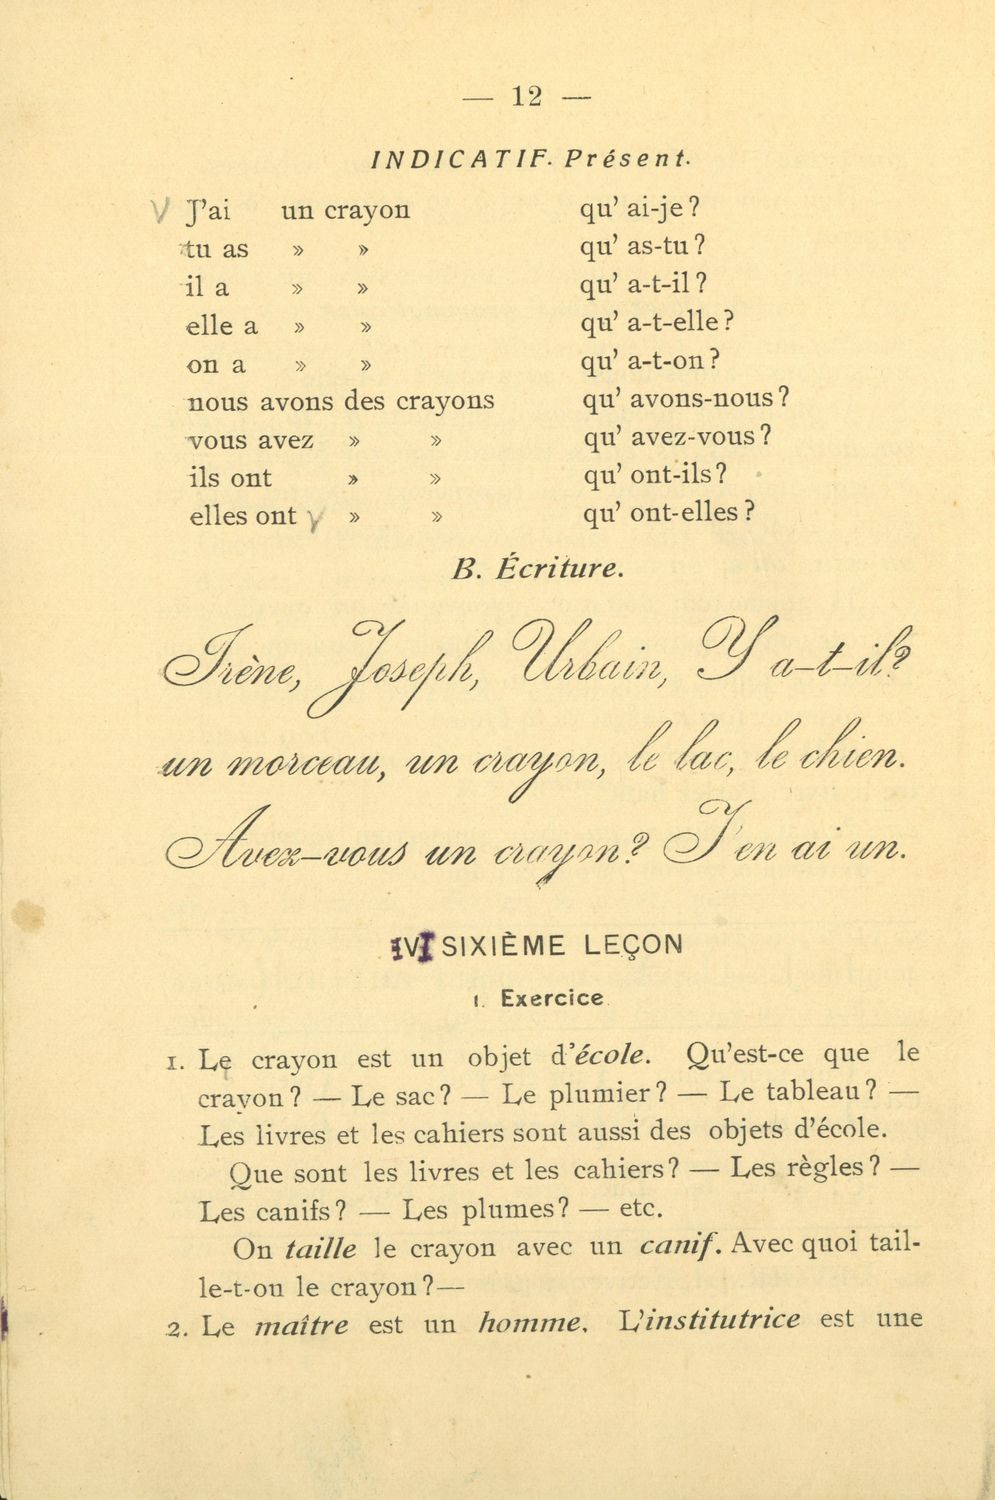 — 12 —
INDICATIF. Présent.
J'ai un crayon qu' ai-je ?
tu as » » qu' as-tu ?
il a » » qu' a-t-il ?
elle a » » qu' a-t-elle ?
on a » » qu' a-t-on ?
nous avons des crayons qu' avons-nous ?
vous avez » » qu' avez-vous ?
ils ont » » qu' ont-ils ?
elles ont » » qu' ont-elles ?
B. Écriture.
Irène, Joseph, Urbain, Y a-t-il?
un morceau, un crayon, le lac, le chien.
Avez-vous un crayon? J'en ai un.
VI SIXIÈME LEÇON
1. Exercice
1. Le crayon est un objet d'école. Qu'est-ce que le
crayon ? — Le sac ? — Le plumier ? — Le tableau ? —
Les livres et les cahiers sont aussi des objets d'école.
Que sont les livres et les cahiers ? — Les règles ? —
Les canifs ? — Les plumes ? — etc.
On taille le crayon avec un canif. Avec quoi tail-
le-t-on le crayon ?—
2. Le maître est un homme. L'institutrice est une